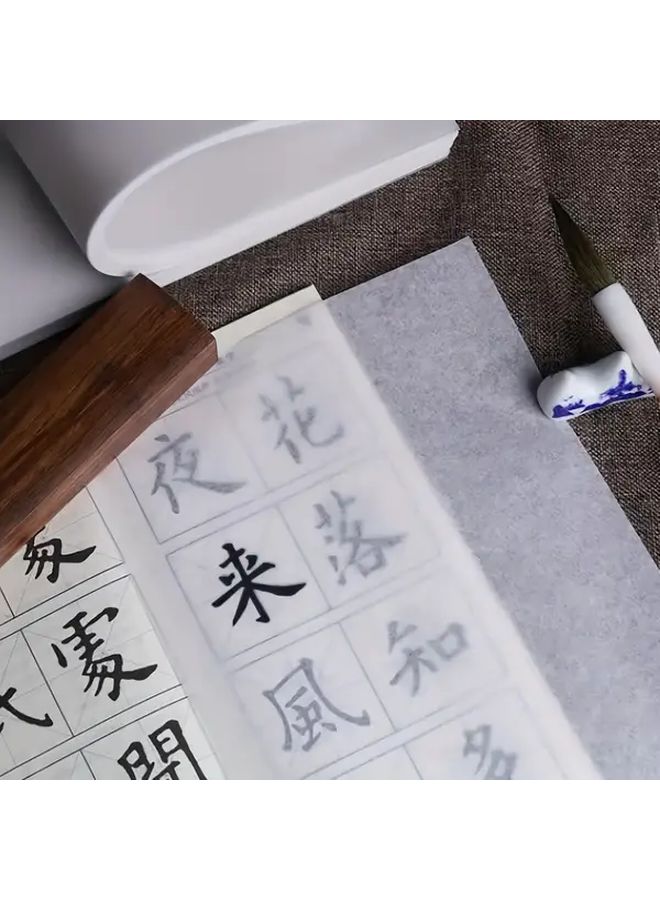 花落知多
夜来風
處聞